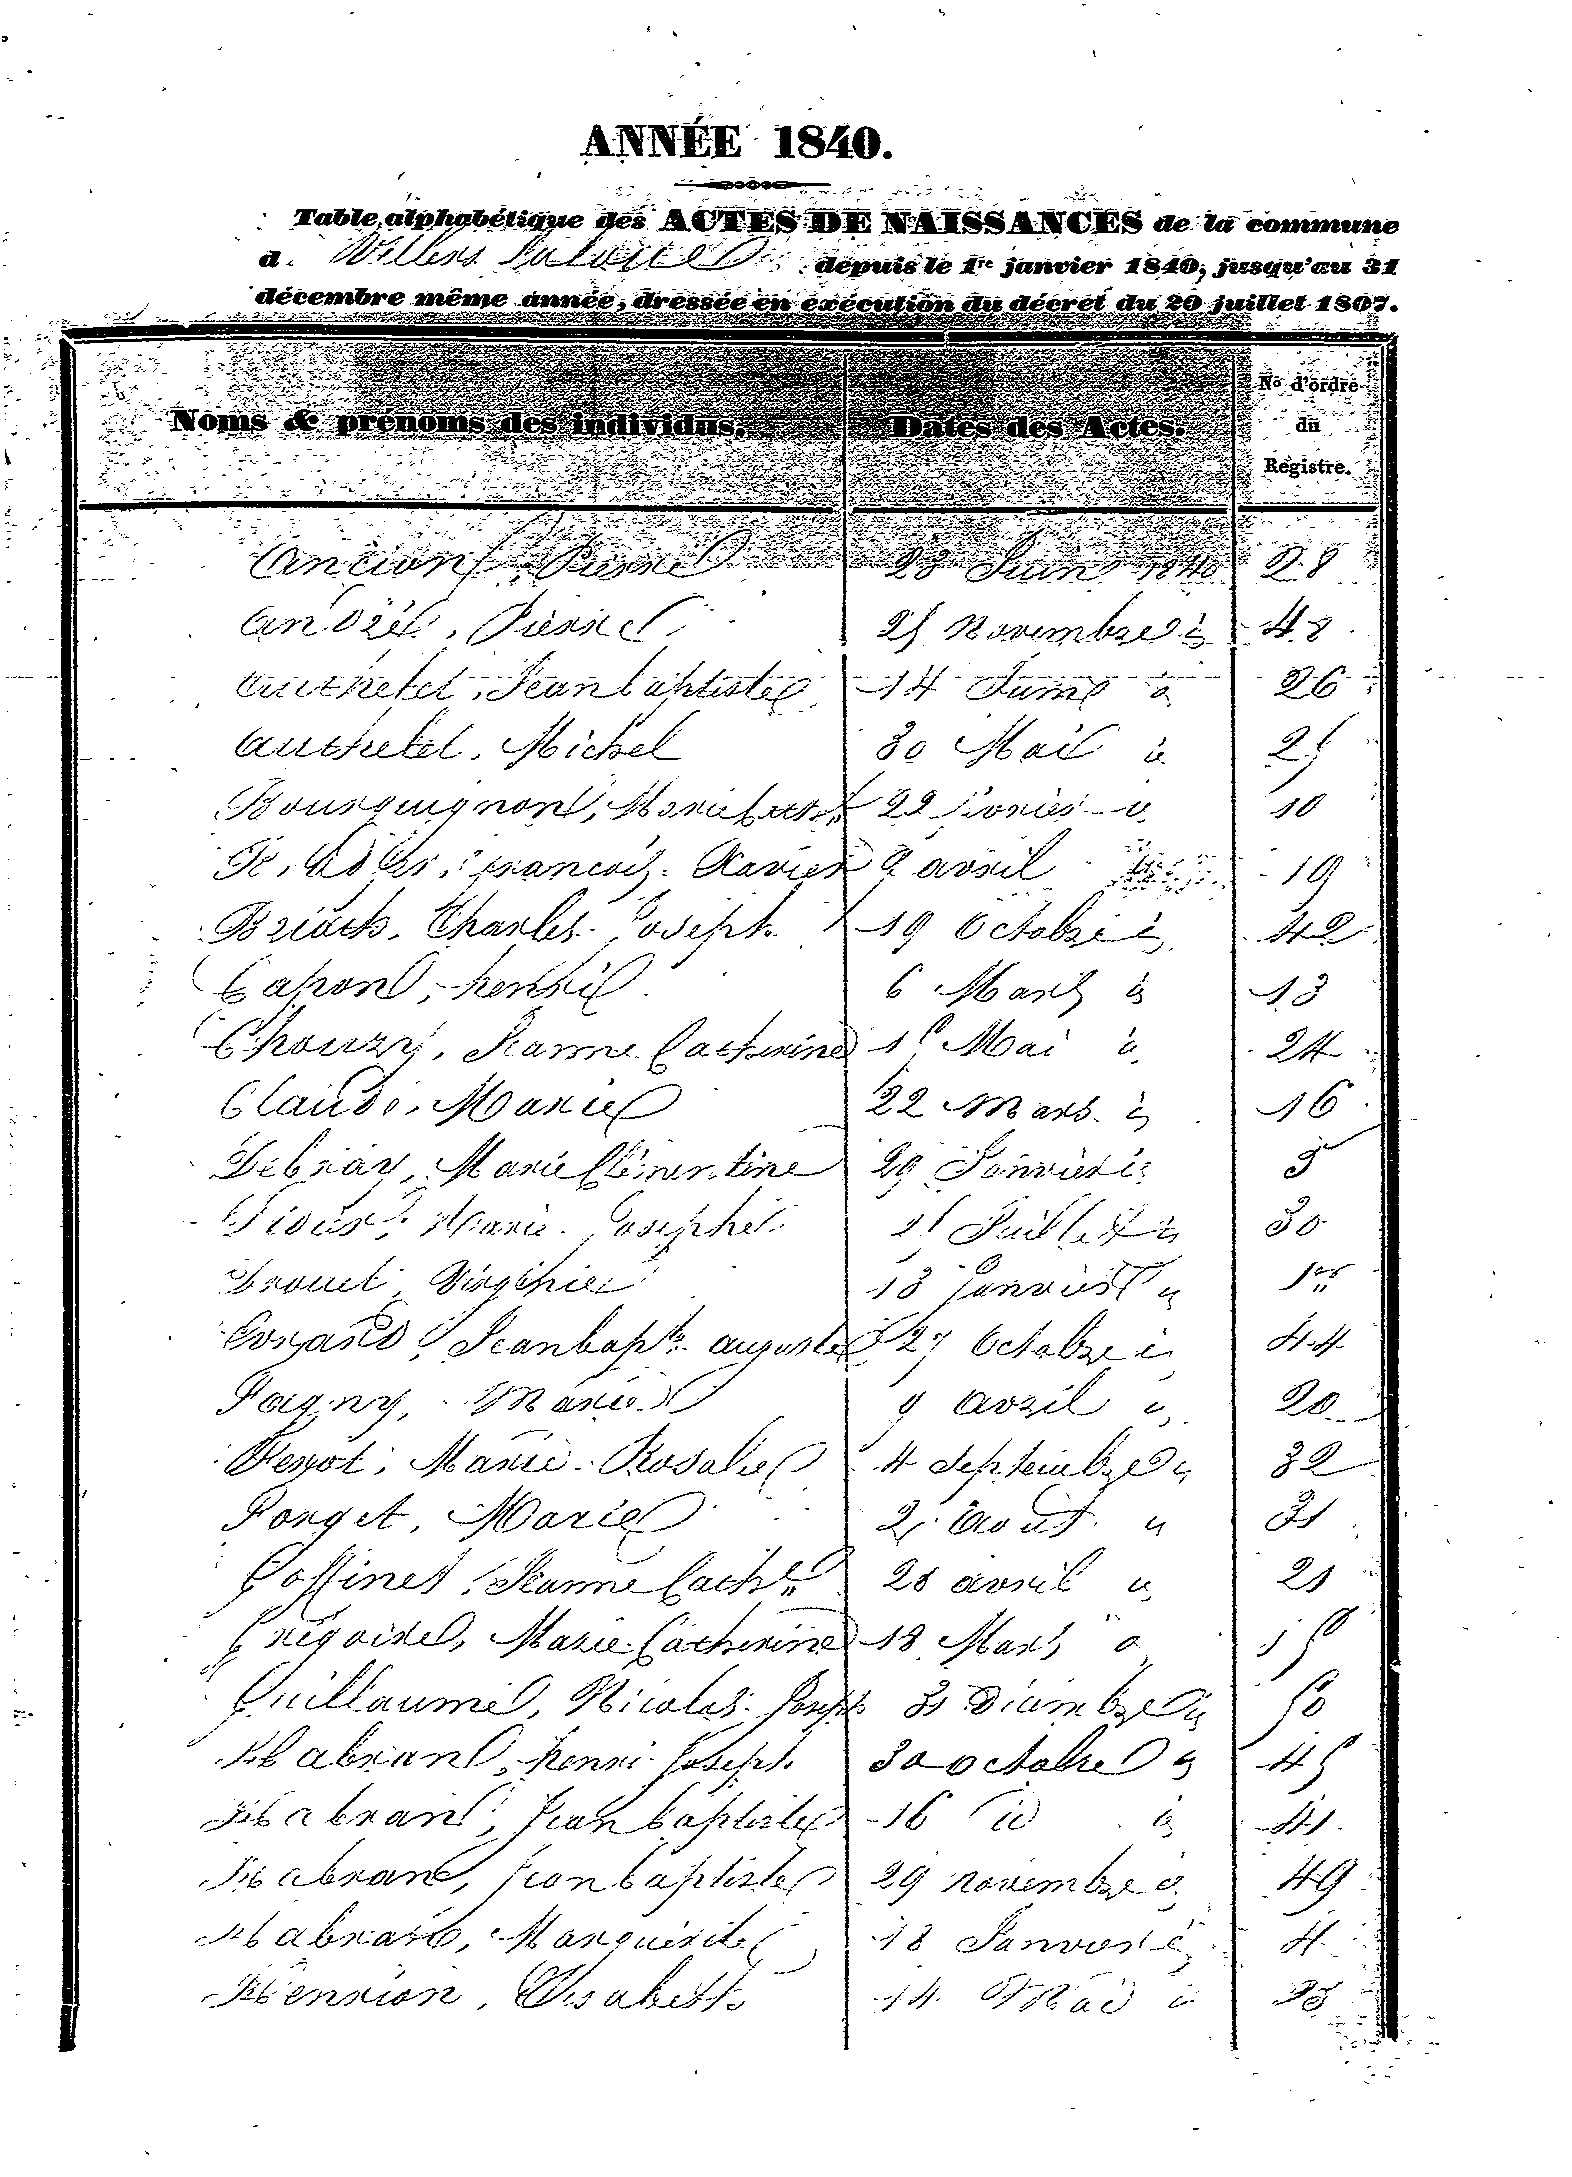 ANNÉE 1840.
Table alphabétique des ACTES DE NAISSANCES de la commune
d Villers depuis le 1re janvier 1840, jusqu'au 31
décembre même année, dressée en exécution du décret du 20 juillet 1807.
Noms & prénoms des individus. Dates des Actes. No d'ordre du Régistre.
Ancion, Pierre 28 Juin 1840 28
André, Pierre 25 Novembre " 48
Authelet, Jean baptiste 14 "  26
Authelet, Michel 30 Mai " 25
Bourguignon, 22 " 10
François Xavier avril 19
Charles Joseph 19 Octobre " 42
Capon, henri 6 Mars " 13
Jeanne Catherine 15 Mai " 24
Claude, Marie 22 Mars " 16
Debray, Marie Clémentine 29 Janvier " 5
Marie Josephe Juillet " 30
Drouet Virginie 13 Janvier " 1er
Evrard, Jean bapte auguste 27 Octobre " 44
Fagny, Marie 9 avril " 20
Marie Rosalie 4 Septembre " 32
Forget, Marie Août " 31
Goffinet, Jeanne Cathne 28 avril " 21
Grégoire, Marie Catherine 18 Mars " 15
Guillaume, Nicolas Joseph 31 Décembre " 50
Habran, henri Joseph 30 octobre " 45
Habran, Jean baptiste 16 id " 41
Habran, Jean baptiste 29 novembre " 49
Habran, Marguerite 18 Janvier " 4
Henrion, Elisabeth 14 Mai " 23